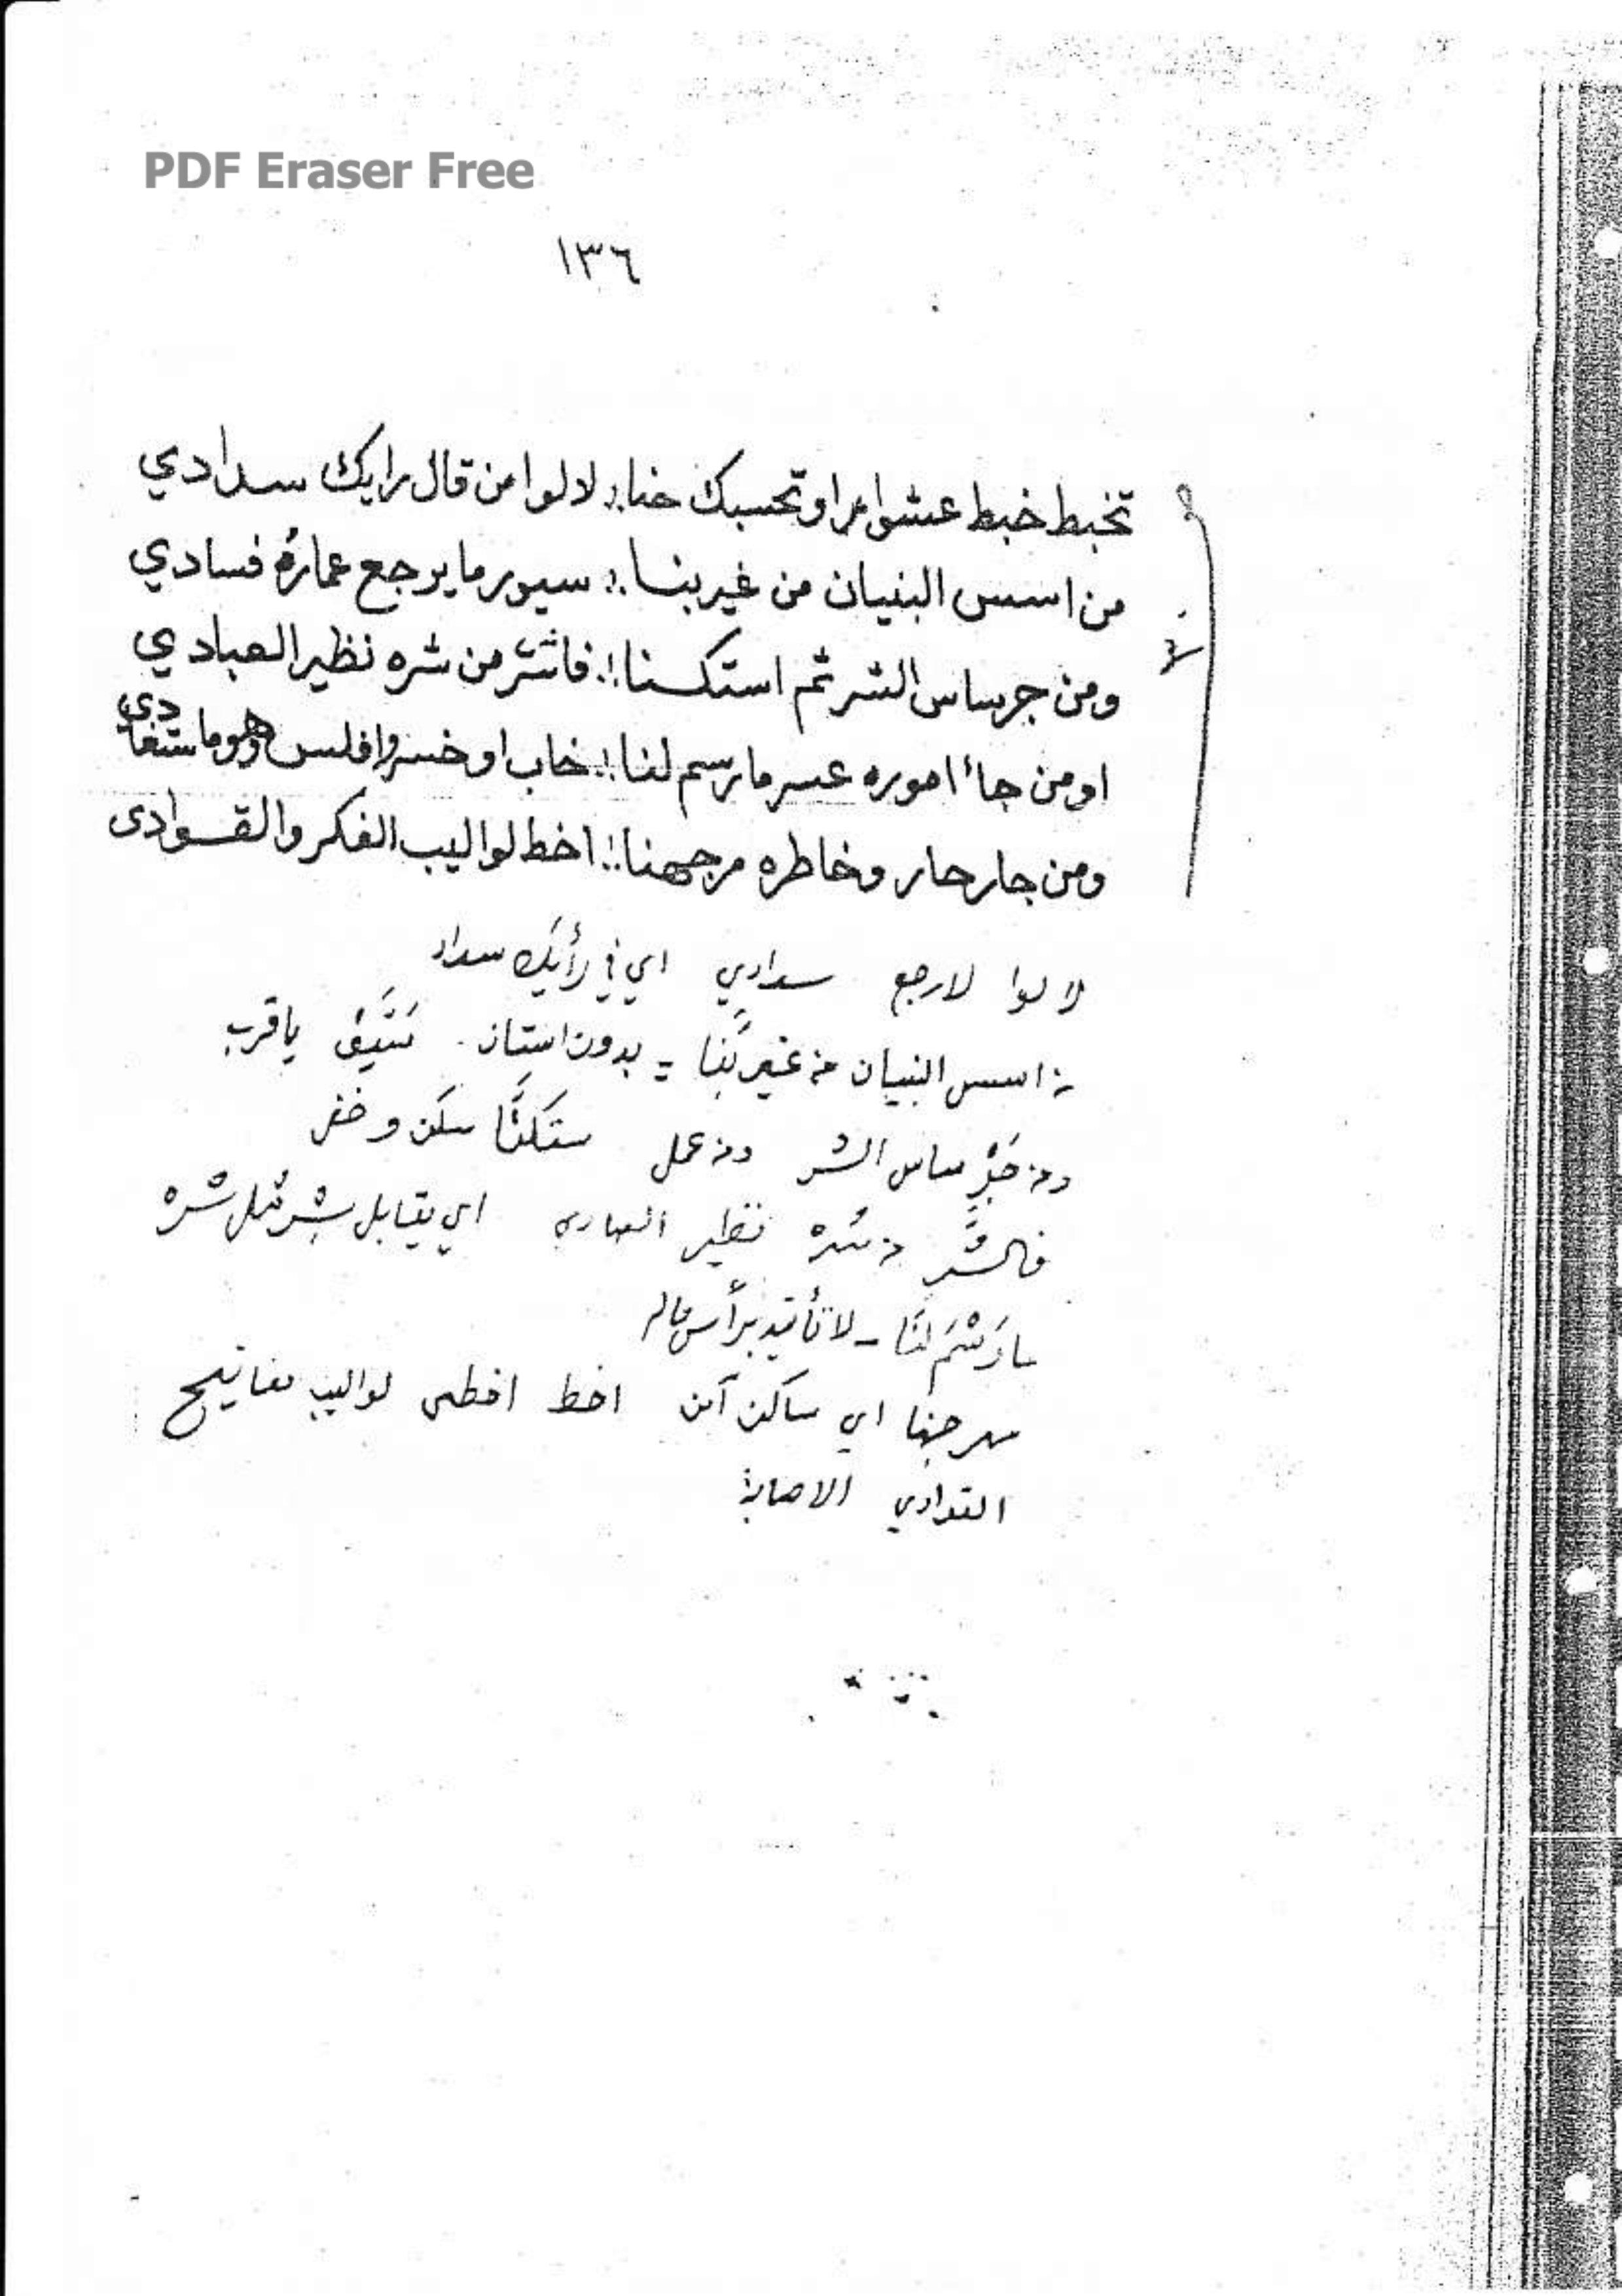 PDF Eraser Free
١٣٦
تخبط خبط عشوا مرا وتحسبك خنا :: لالوا من قال رايك سدادي
من اسس البنيان من غير بنا :: سيور ما يرجع عماره فسادي
ومن جر ساس الشر ثم استكنا :: فا شر من شره نظير العبادي
او من جا اموره عسر ما رسم لنا :: خاب او خسر وافلس وهو ما ستفادى
ومن جار حار وخاطره مرجهنا :: اخط لواليب الفكر والقوادى
لا لوا لارجع سدادي اي في رأيك سداد
اسس البنيان من غير بَنا = بدون استاذ يا قرب
ساس الشر ومن عمل ستكنَّا سكن و
شره نظير العبادي اي يقابل بشر مثل شره
لنا - لا تأتيه برأس ماله
مرجهنا اي ساكن آمن اخط اخطى لواليب مفاتيح
القوادي الاصابة